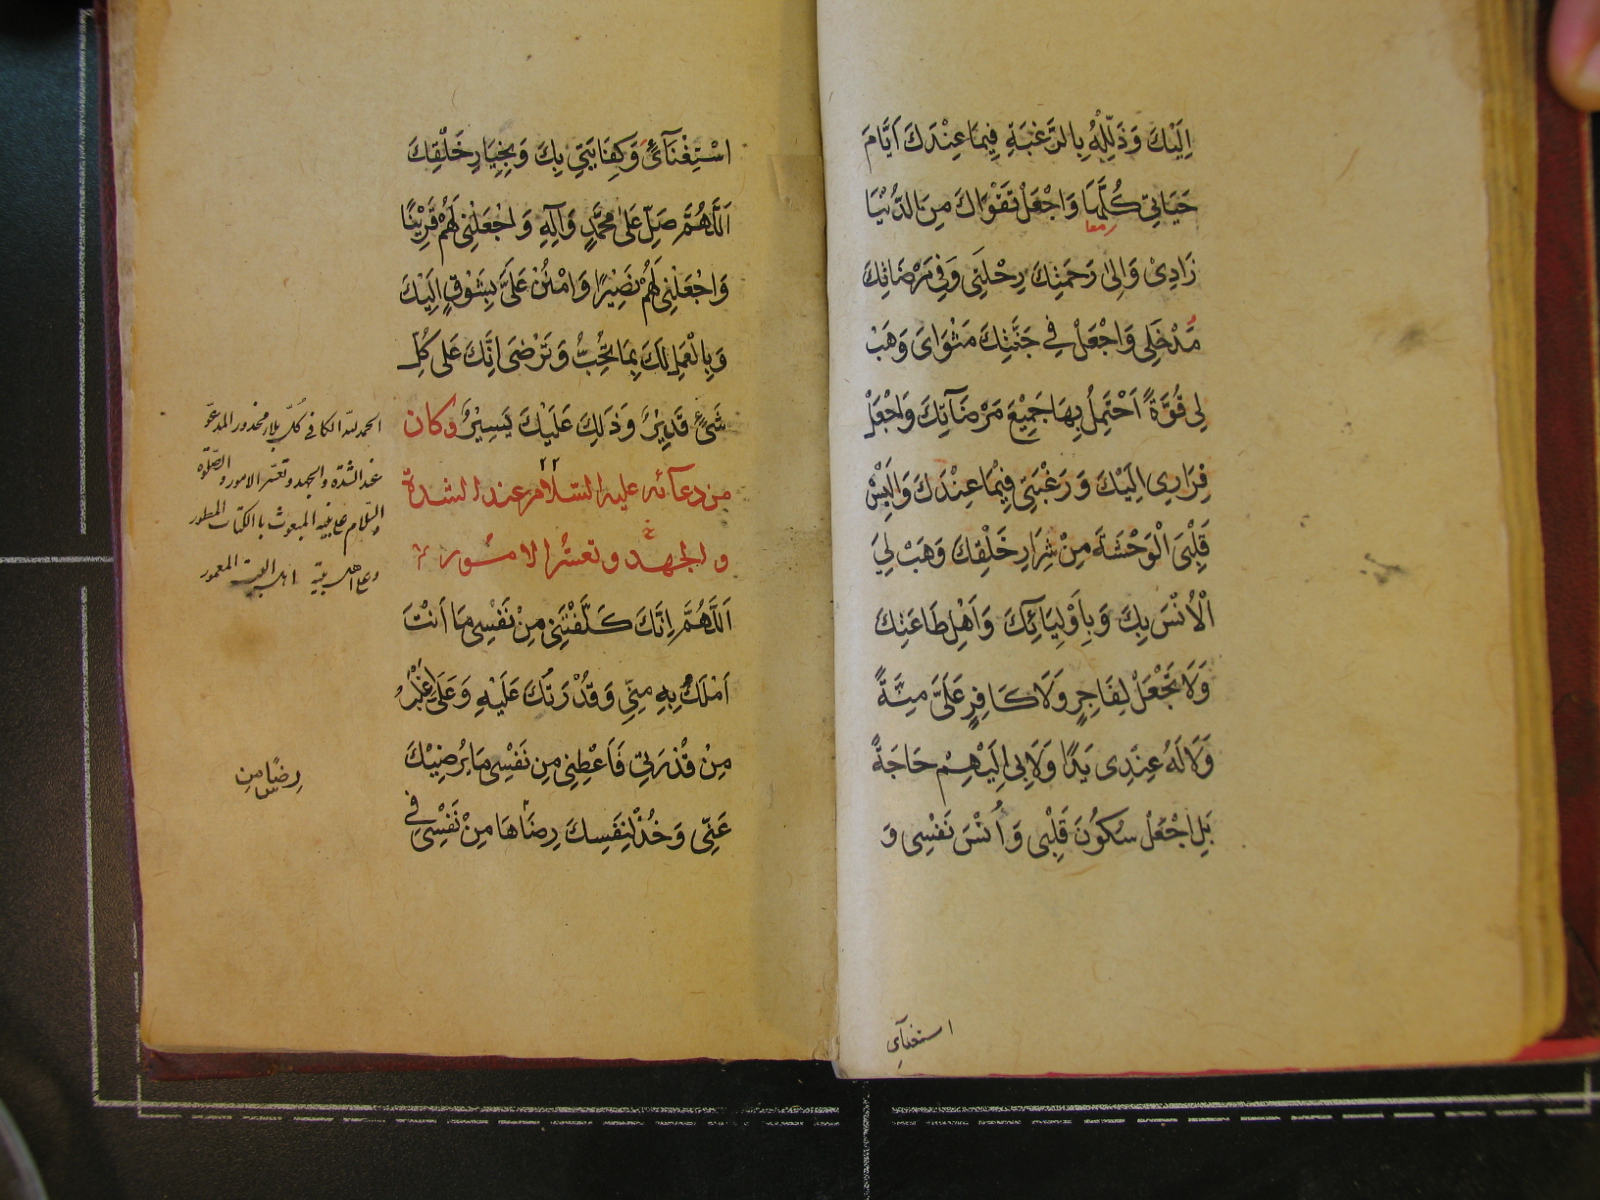 اِلَيْكَ وَذَلِّلْهُ بِالرَّغْبَةِ فِيمَا عِنْدَكَ اَيَّامَ
حَيَاتِي كُلِّهَا وَاجْعَلْ تَقْوَاكَ مِنَ الدُّنْيَا
معا
زَادِيْ وَاِلىٰ رَحْمَتِكَ رِحْلَتِي وَفِي مَرْضَاتِكَ
مَدْخَلِي وَاجْعَلْ فِي جَنَّتِكَ مَثْوَايَ وَهَبْ
لِي قُوَّةً اَحْتَمِلُ بِهَا جَمِيْعَ مَرْضَآتِكَ وَاجْعَلْ
فِرَارِي اِلَيْكَ وَرَغْبَتِي فِيْمَا عِنْدَكَ وَاَلْبِسْ
قَلْبِيَ الْوَحْشَةَ مِنْ شِرَارِ خَلْقِكَ وَهَبْ لِيَ
الْاُنْسَ بِكَ وَبِاَوْلِيَائِكَ وَاَهْلِ طَاعَتِكَ
وَلَا تَجْعَلْ لِفَاجِرٍ وَلَا كَافِرٍ عَلَيَّ مِنَّةً
وَلَا لَهُ عِنْدِي يَدًا وَلَا بِي اِلَيْهِمْ حَاجَةً
بَلِ اجْعَلْ سُكُوْنَ قَلْبِي وَاُنْسَ نَفْسِي وَ
استغنآئي
اسْتِغْنَآئِي وَكِفَايَتِي بِكَ وَبِخِيَارِ خَلْقِكَ
اَللَّهُمَّ صَلِّ عَلىٰ مُحَمَّدٍ وَآلِهِ وَاجْعَلْنِي لَهُمْ قَرِيْنًا
وَاجْعَلْنِي لَهُمْ نَصِيْرًا وَامْنُنْ عَلَيَّ بِشَوْقٍ اِلَيْكَ
وَبِالْعَمَلِ لَكَ بِمَا تُحِبُّ وَتَرْضَى اِنَّكَ عَلَى كُلِّ
شَيْءٍ قَدِيْرٌ وَذٰلِكَ عَلَيْكَ يَسِيْرٌ وكان
من دعآئه عليه السّلام عند الشدة
۲۲
والجهد وتعسّر الامور
اَللَّهُمَّ اِنَّكَ كَلَّفْتَنِي مِنْ نَفْسِي مَا اَنْتَ
اَمْلَكُ بِهِ مِنِّي وَقُدْرَتُكَ عَلَيْهِ وَعَلَيَّ اَغْلَبُ
مِنْ قُدْرَتِي فَاَعْطِنِي مِنْ نَفْسِي مَا يُرْضِيْكَ
عَنِّي وَخُذْ لِنَفْسِكَ رِضَاهَا مِنْ نَفْسِي فِي
الحمد للّه الكافي كُلّ بلاء محذور المدعوّ
عند الشدّة والجهد وتعسّر الامور والصّلوة
والسّلام على نبيه المبعوث بالكتاب المسطور
وعلى اهل بيته البيت المعمور
رِضًا مِن